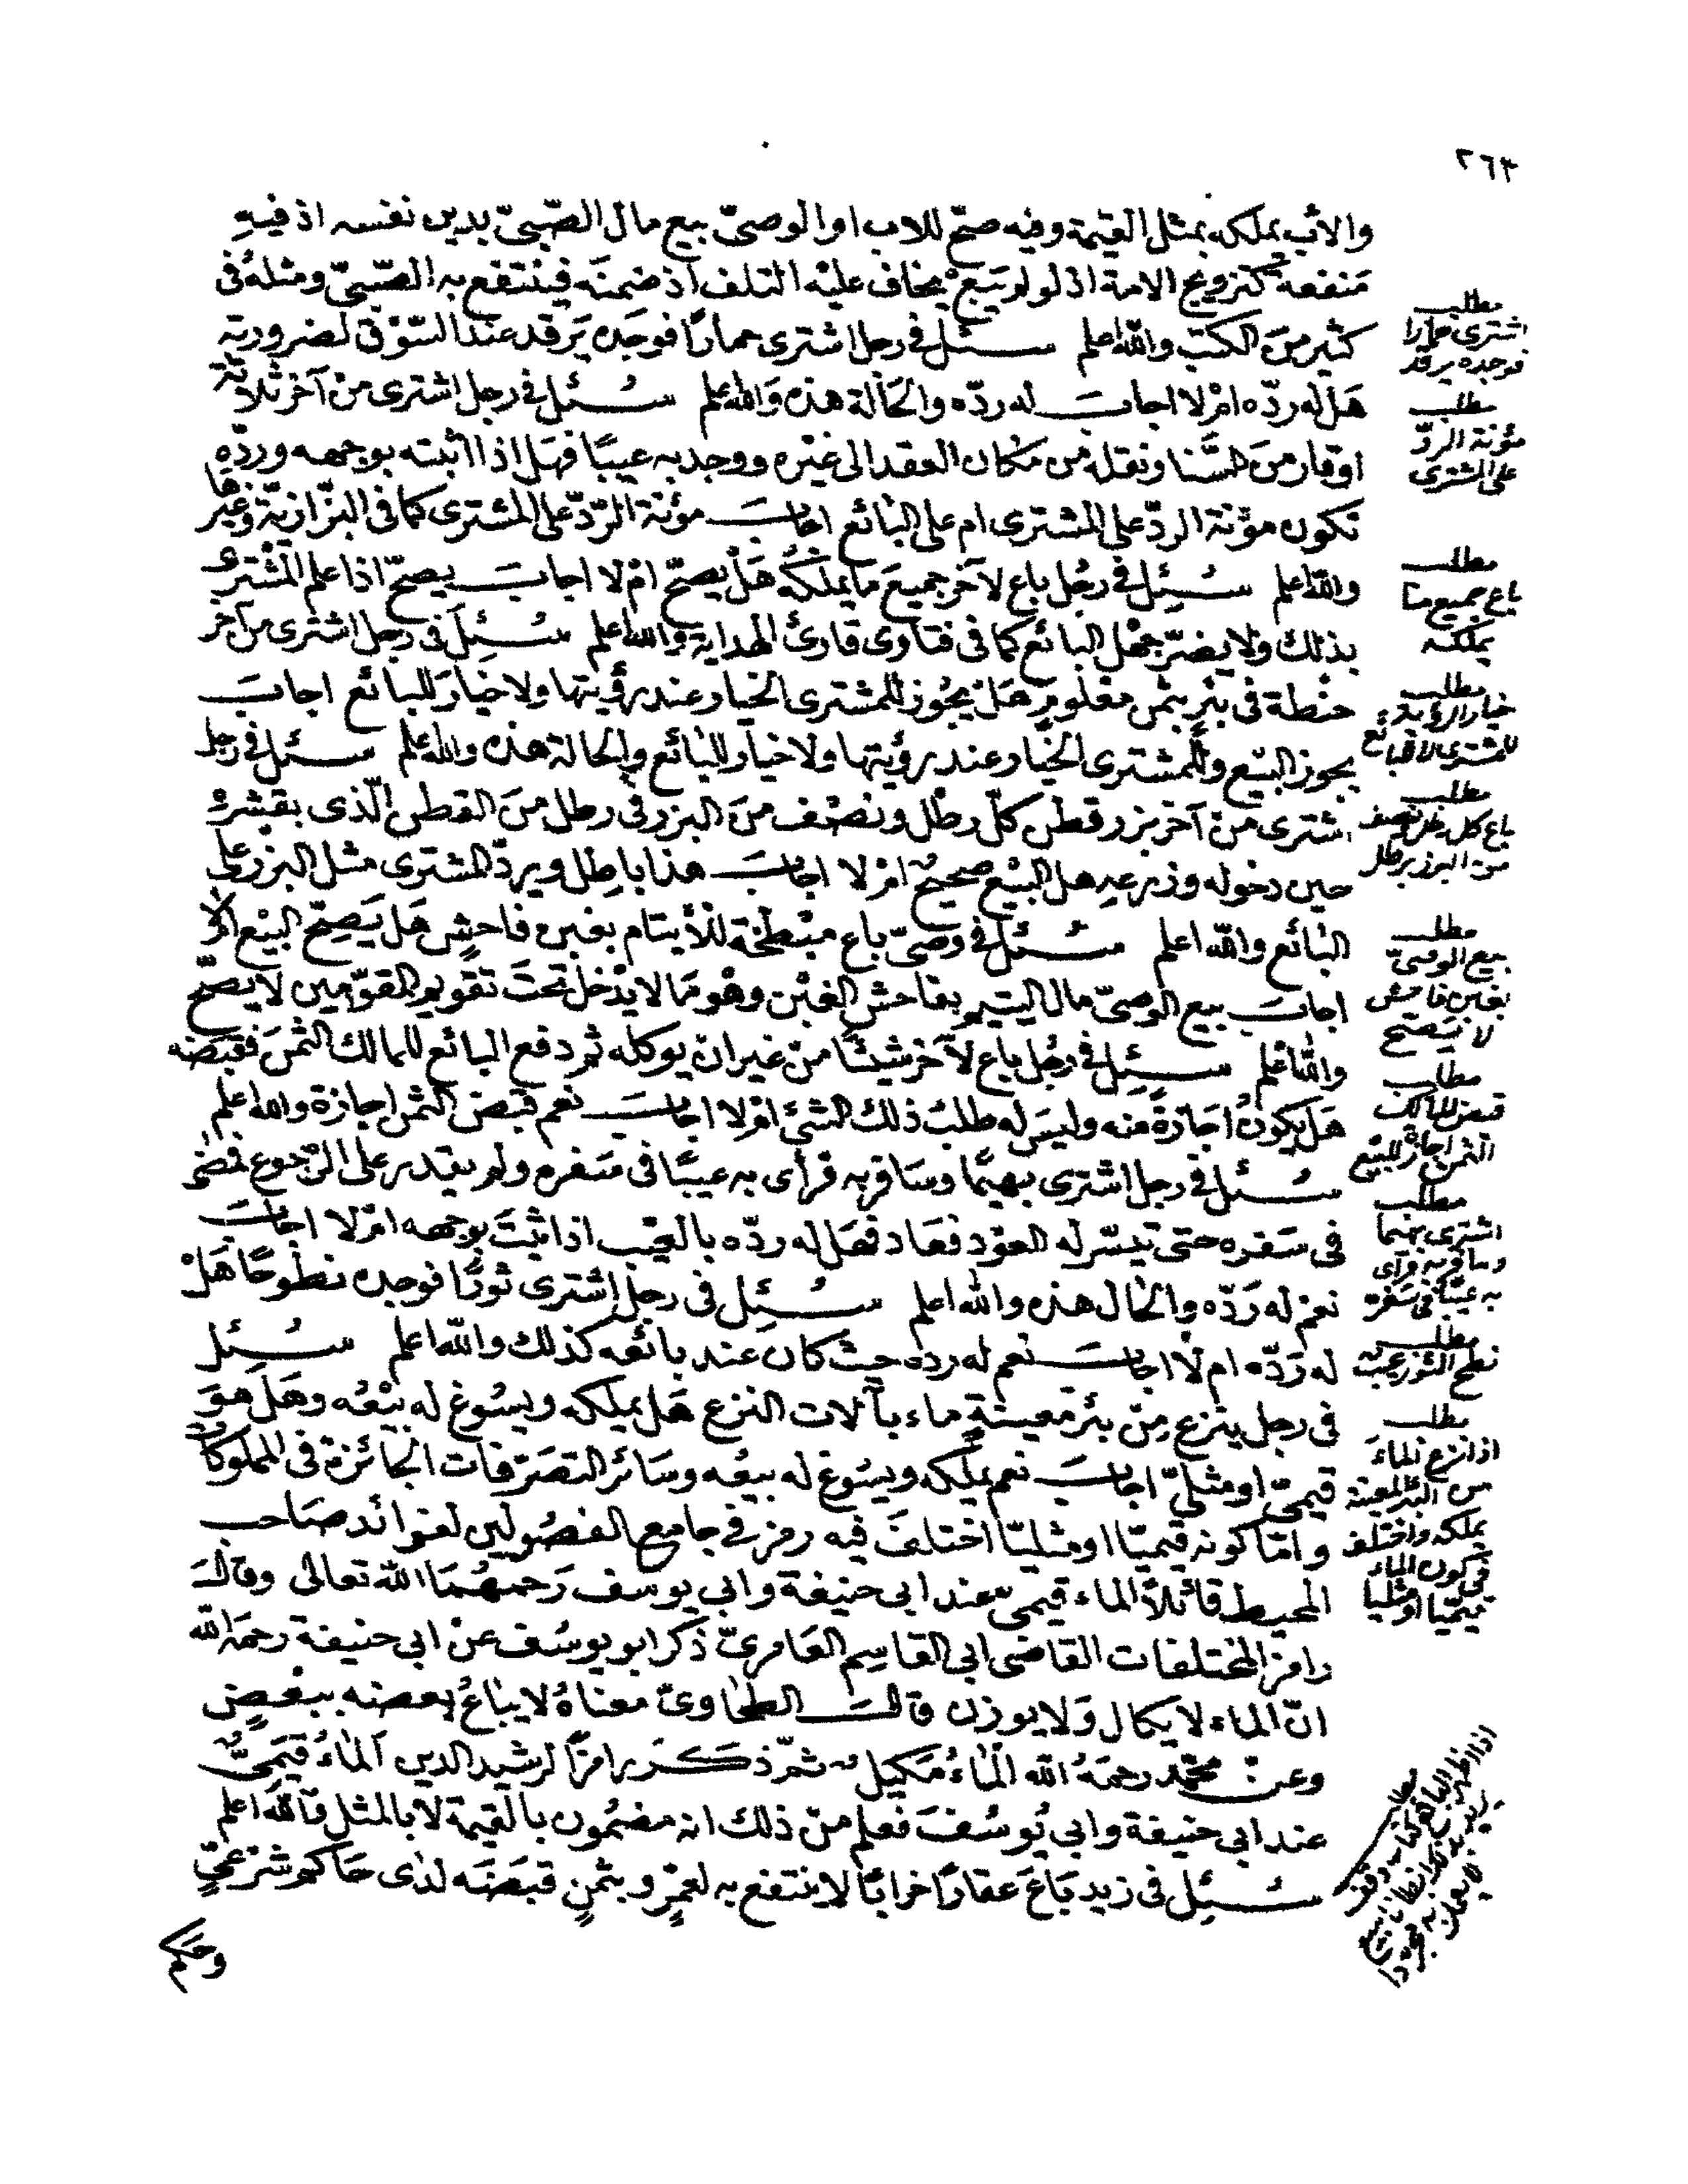 ٢٦٣
والأب يملكه بمثل القيمة وفيه صحّ للاب او الوصىّ بيع مال الصّبىّ بدين نفسه اذ فيه
مَنفعة كتزويج الامة اذ لو لم يَبع يخاف عليْه التلف اذ ضمنَه فينتفع به الصّبىّ ومثلهُ فى
كثير منَ الكتب والله اعلم سئل فى رجل اشترى حمارًا فوجَده يَرقد عند السّوْق لضرورته
هَل له ردّه امْ لا اجابَ له ردّه والحَالة هذه وَالله اعلم سُئل فى رجل اشترى منْ آخر ثلاثة
اوقار منَ السَّنا ونقله من مَكان العقد الى غيْره ووجد به عيبًا فهَل اذا اثبته بوجهه وردّه
تكون مؤنة الردّ على المشترى ام على البائع اجابَ مؤنة الرّدّ على المشترى كما فى البزّازيّة وغيرها
والله اعلم سُئِل فى رجُل باع لآخر جميعَ ما يملكهُ هَلْ يصحّ امْ لا اجابَ يصحّ اذا علم المشترى
بذلك وَلا يضرّ جهْل البائع كما فى فتاوى قارئ الهداية والله اعلم سُئِلَ فى رجل اشترى من آخر
حنْطة فى بئر بثمن معْلومٍ هَل يجُوز للمشترى الخيار عند رؤيتها ولا خيَارَ للبائع اجابَ
يجوز البيْع وللمشترى الخيَار عند رؤيتها ولا خيار للبائع والحالة هذه والله اعلم سئل فى رجل
اشترى منْ آخر بزر قطن كلّ رطل ونصْف منَ البزر فى رطل منَ القطن الّذى بقشره
حين دخوله وزرعهِ هل البيْع صحيحٌ امْ لا اجابَ هذا باطِل ويردّ المشترى مثل البزر على
البائع والله اعلم سُئل فى وصىّ باع مبْطخة للأيتام بغبن فاحشٍ هَل يَصِحّ البيْع ام لا
اجابَ بيع الوصىّ مال اليتيم بفاحش الغبْن وهوَ مَا لا يدْخل تحتَ تقويم المقوّمين لا يصحّ
والله اعْلم سئِل فى رجُل باع لآخر شيئًا منْ غير ان يوكله ثم دفع البائع للمالك الثمنَ فقبَضه
هَل يكونُ اجَازةً منه وليسَ له طلبُ ذلك الشئ امْ لا اجابَ نعم قبضُ الثمن اجازة والله اعلم
سُئل فى رجل اشترى بهيمًا وسَافر به فرأى به عيبًا فى سَفره ولم يقدر على الرّجوع فمضى
فى سَفره حتى تيسّر له العوْد فعَاد فهَل له ردّه بالعيْب اذا ثبتَ بوجهه امْ لا اجابَ
نعمْ له رَدّه والحَال هذه والله اعلم سُئِل فى رجل اشترى ثورًا فوجده نطوحًا هَلْ
له رَدّه ام لَا اجابَ نعم له رده حيث كان عند بائعه كذلك والله اعلم سُئِل
فى رجل ينزع مِنْ بئر معينةٍ ماء بآلات النزع هَل يملكه ويسُوغ له بيْعُه وهَل هوَ
قيمىّ او مثلىّ اجابَ نعم يملكه ويسُوغ له بيعُه وسَائر التصَرّفات الجائزة فى المملوكات
وامّا كونه قيميّا او مثليّا اختلفَ فيه رمز فى جامع الفصُولين لفوائد صَاحب
المحيط قائلاً الماء قيمىّ عند ابى حنيفة وابى يوسف رَحمهُمَا الله تعالى وقالَ
رامز المختلفات القاضى ابى القاسِم العَامرىّ ذكر ابو يوسُف عنْ ابى حنيفة رحمه الله
انّ الماء لا يكال وَلا يوزن قالَ الطحاوىّ معناهُ لا يباعُ بعضه ببعْضٍ
وعنْ محمّد رحمَهُ الله المَاءُ مَكيلٌ ثمّ ذَكَرَ رامزًا لرشيد الدين المَاءُ قيَمىٌّ
عند ابى حنيفة وابى يُوسُفَ فعلم منْ ذلك انه مضمُون بالقيمة لا بالمثل والله اعلم
سُئِل فى زيد بَاعَ عقارًا خرابًا لا ينتفع به لعَمْرٍو بثمنٍ قبَضَه لدَى حَاكم شرْعىّ
وحكم
مطلب
اشترى حمارا
فوجده يرقد
مطلب
مؤنة الردّ
على المشترى
مطلب
باع جميع ما
يملكه
مطلب
خيار الرؤية
للمشترى لا للبائع
مطلب
باع كل رطل ونصف
من البزر برطل
مطلب
بيع الوصىّ
بغبن فاحش
لا يَصحّ
مطلب
قبض المالك
الثمن اجازة للبيع
مطلب
اشترى بهيما
وسافر به فرأى
به عيبًا فى سَفره
مطلب
نطح الثور عيب
مطلب
اذا نزع الماءَ
من البئر المعينة
يملكه واختلف
فى كون الماء
قيميّا او مثليا